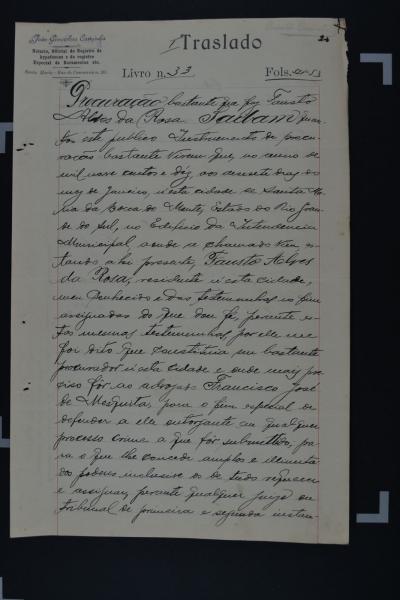 João Gonçalves
Notario, Official do Registro de
hypothecas e do registro
Especial de Documentos etc.
Santa Maria - Rua do Commercio
24
1 Traslado
Livro n. 33 Fols.
Procuração bastante que faz Fausto
Alves da Rosa. Saibam quan-
tos este publico Instrumento de procu-
ração bastante virem que, no anno de
mil nove centos e dez, aos dias do
mez de Janeiro, n'esta cidade de Santa Ma-
ria da Bocca do Monte, Estado do Rio Gran-
de do Sul, no Edificio da Intendencia
Municipal aonde a chamado vim, es-
tando ahi presente, Fausto Alves
da Rosa, residente n'esta cidade,
meu conhecido e das testemunhas no fim
assignadas do que dou fé, perante es-
tas mesmas testemunhas por elle me
foi dito que constituia seu bastante
procurador n'esta cidade e onde mais pre-
ciso fôr ao advogado Francisco José
de Mesquita, para o fim especial de
defender a elle outorgante em qualquer
processo crime a que fôr submettido, pa-
ra o que lhe concede amplos e illimita-
dos poderes inclusive os de tudo requerer
e assignar, perante qualquer juizo ou
tribunal de primeira e segunda instan-